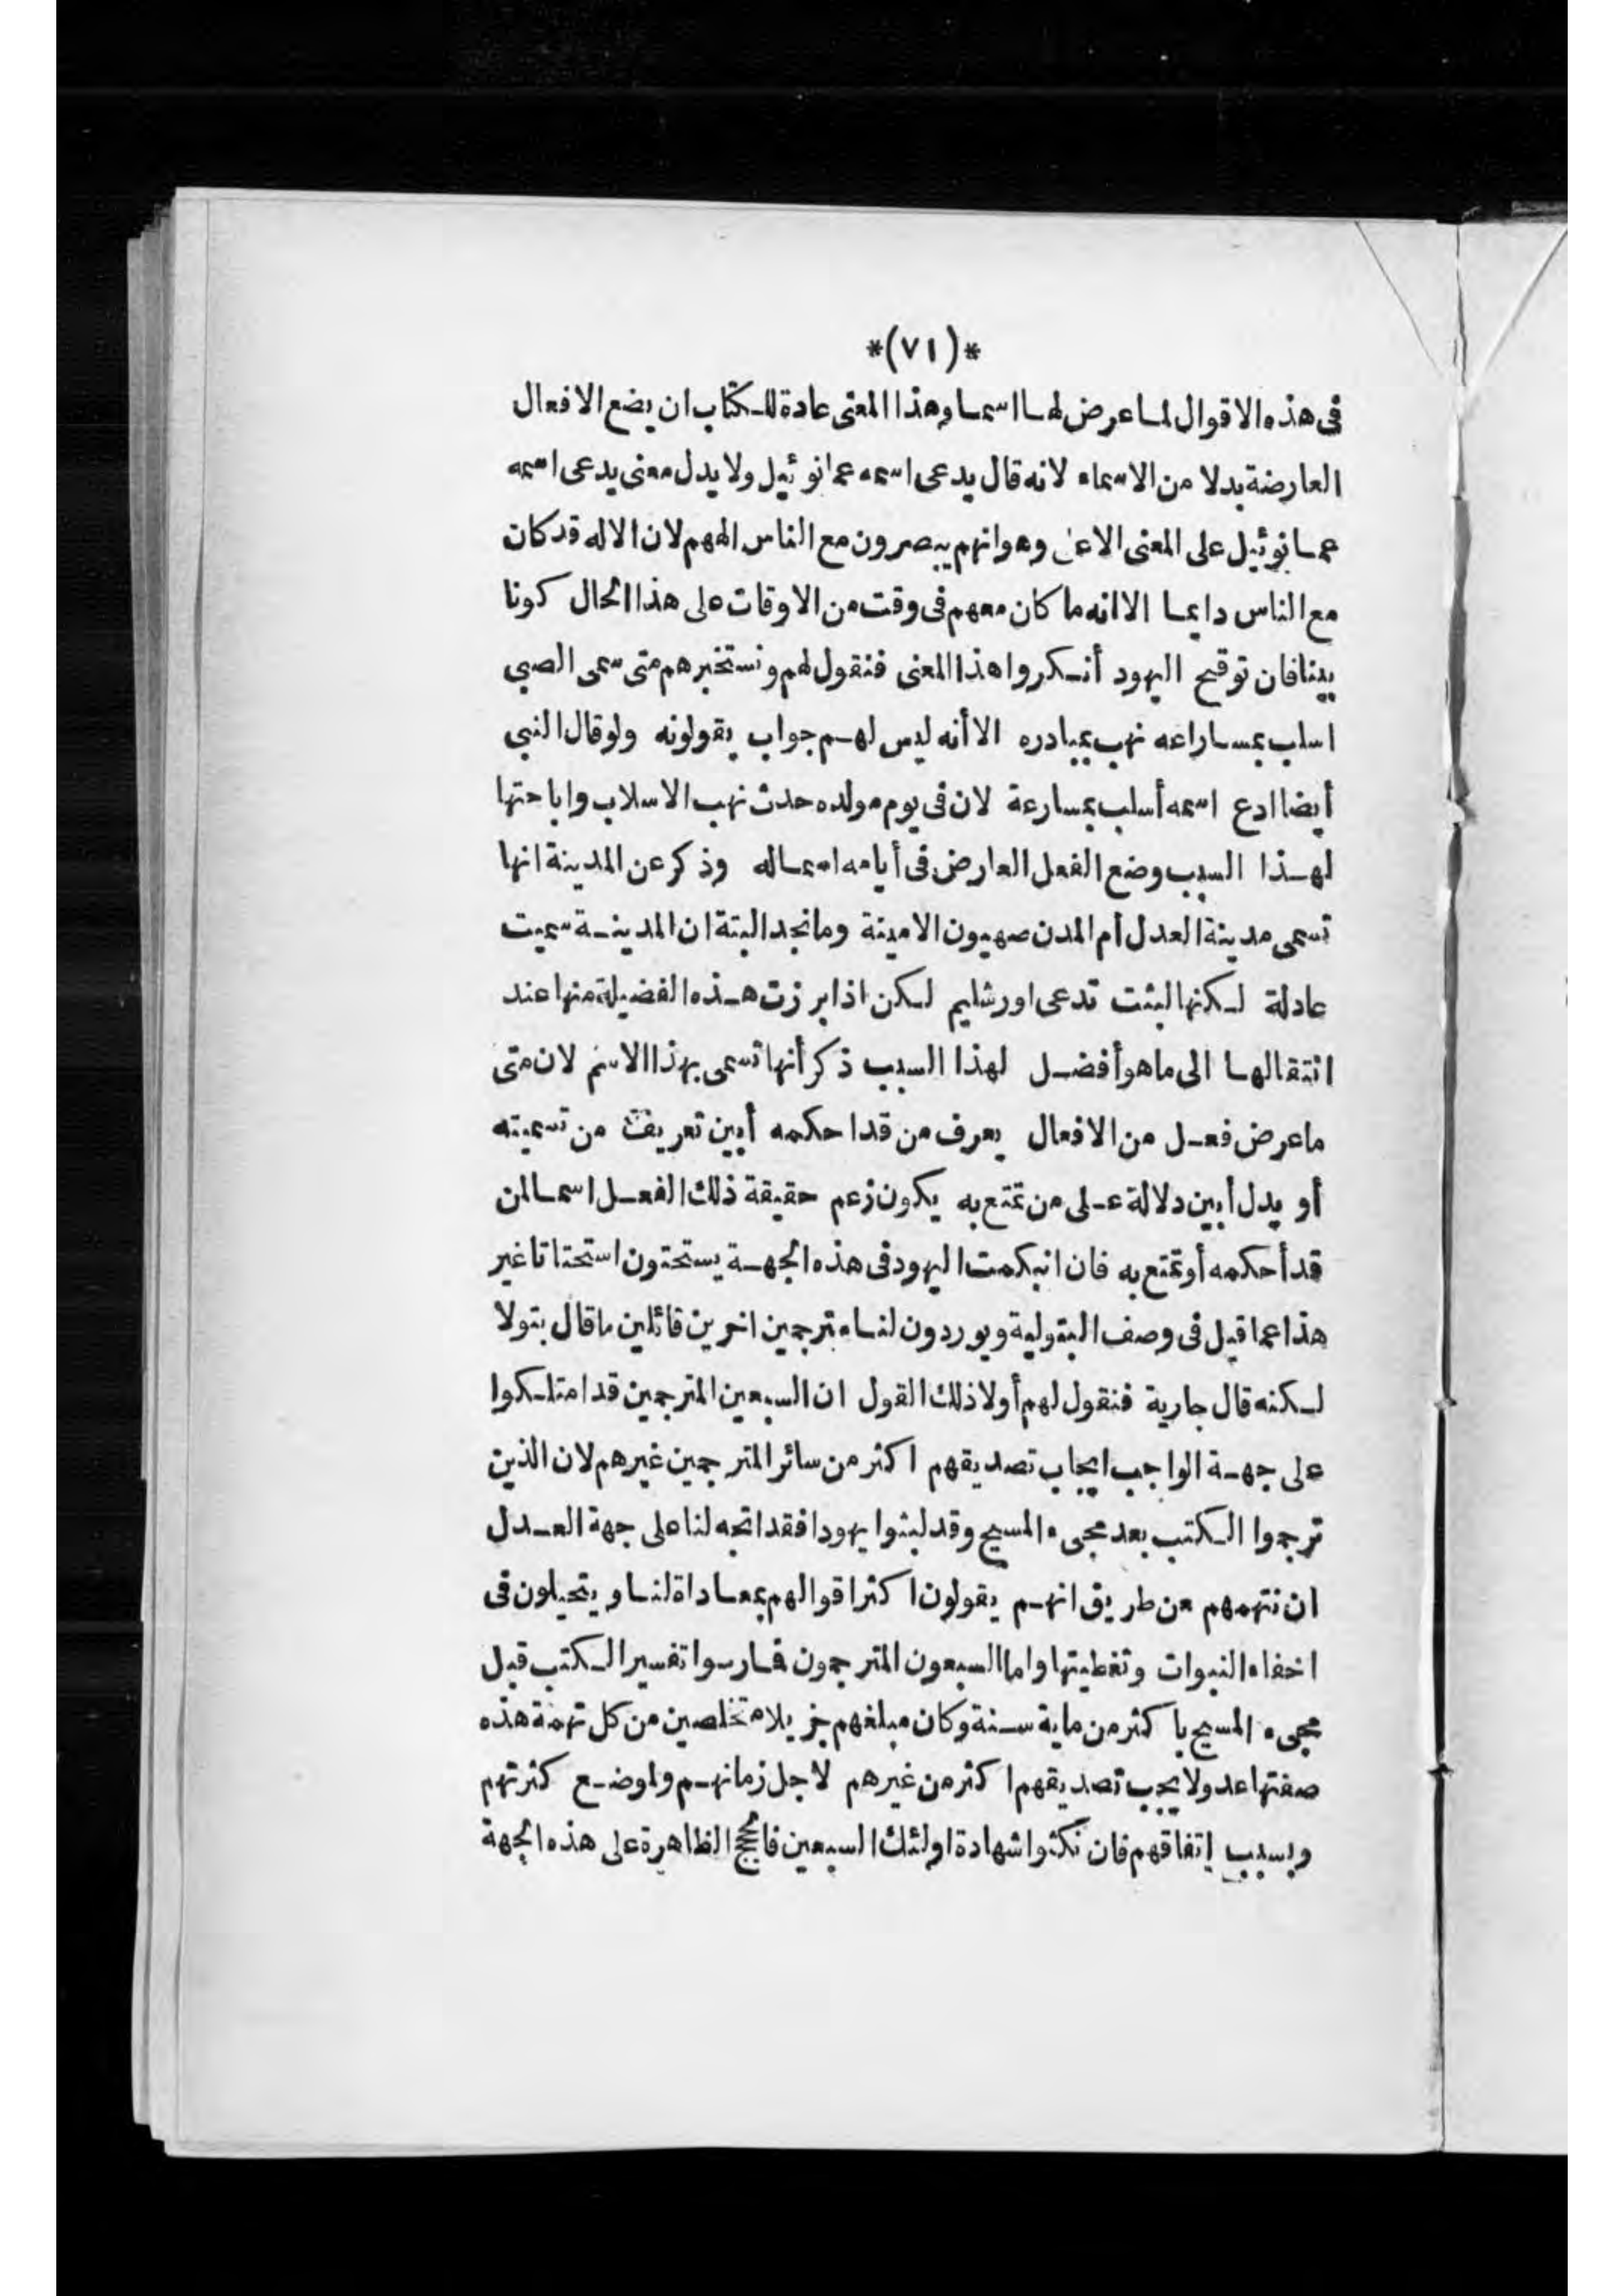 *(٧١)*
فى هذه الاقوال لما عرض لها اسما وهذا المعنى عادة للكتاب ان يضع الافعال
العارضة بدلا من الاسماء لانه قال يدعى اسمه عمانوئيل ولا يدل معنى يدعى اسمه
عمانوئيل على المعنى الا وهو انهم يبصرون مع الناس الههم لان الاله قد كان
مع الناس دايما الا انه ما كان معهم فى وقت من الاوقات على هذا الحال كونا
بينا فان توقح اليهود أنكروا هذا المعنى فنقول لهم ونستخبرهم متى سمى الصبي
اسلب بمساراعه نهب بمبادره الا أنه ليس لهم جواب يقولونه ولو قال النبى
أيضا ادع اسمه أسلب بمسارعة لان فى يوم مولده حدث نهب الاسلاب واباحتها
لهذا السبب وضع الفعل العارض فى أيامه اسما له وذكر عن المدينة انها
تسمى مدينة العدل أم المدن صهيون الامينة وما نجد البتة ان المدينة سميت
عادلة لكنها لبثت تدعى اورشليم لكن اذا برزت هذه الفضيلة منها عند
انتقالها الى ما هو أفضل لهذا السبب ذكر أنها تسمى بهذا الاسم لان متى
ما عرض فعل من الافعال يعرف من قد احكمه أبين تعريف من تسميته
أو يدل أبين دلالة على من تمتع به يكون زعم حقيقة ذلك الفعل اسما لمن
قد أحكمه أو تمتع به فان انبكمت اليهود فى هذه الجهة يستحثون استحثاثا غير
هذا عما قيل فى وصف البتولية ويوردون لنا مترجمين اخرين قائلين ما قال بتولا
لكنه قال جارية فنقول لهم أولا ذلك القول ان السبعين المترجمين قد امتلكوا
على جهة الواجب ايجاب تصديقهم اكثر من سائر المترجمين غيرهم لان الذين
ترجموا الكتب بعد مجىء المسيح وقد لبثوا يهودا فقد اتجه لنا على جهة العدل
ان نتهمهم من طريق انهم يقولون اكثر اقوالهم بمعاداة لنا ويتحيلون فى
اخفاء النبوات وتغطيتها واما السبعون المترجمون فمارسوا تفسير الكتب قبل
مجىء المسيح باكثر من ماية سنة وكان مبلغهم جزيلا متخلصين من كل تهمة هذه
صفتها عدولا يجب تصديقهم اكثر من غيرهم لاجل زمانهم ولموضع كثرتهم
وبسبب إتفاقهم فان نكثوا شهادة اولئك السبعين فالحجج الظاهرة على هذه الجهة